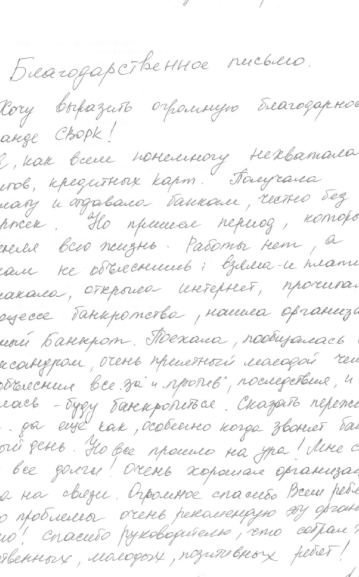 Благодарственное письмо.
Хочу выразить огромную благодарнос
анде СВОРК!
, как всем понемногу нехватала
тов, кредитных карт. Получала
лату и отдавала банкам, честно без
ржек. Но пришел период, котор
жизнь всю. Работы нет, а
кам не объяснишь; взяла-и плати
лакала, открыла интернет, прочитал
оцессе банкротства, нашла организа
ный Банкрот. Поехала, пообщалась
ександром, очень приятный молодой чел
объяснил все "за" и "против", последствия, и
лась - буду банкротиться. Сказать пережи
да еще как, особенно когда звонят бан
ый день. Но все прошло на ура! Мне с
все долги! Очень хорошая организац
а на связи. Огромное спасибо Всем ребя
о проблемы очень рекомендую эту орган
но! Спасибо руководителю, что собрал
ственных, молодых, позитивных ребят!